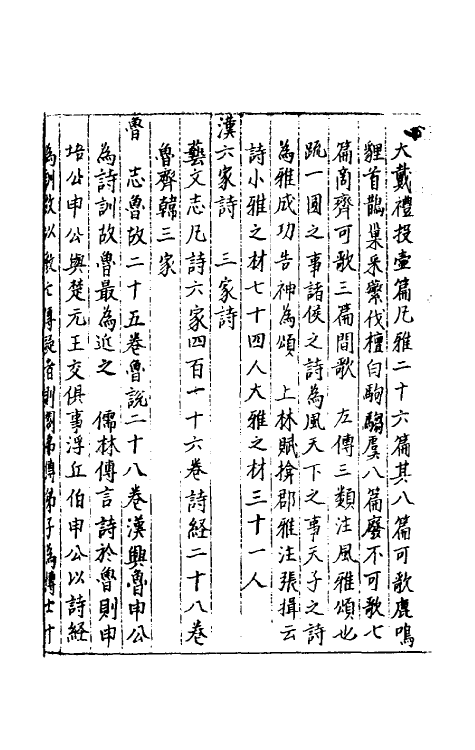 大戴禮投壺篇凡雅二十六篇其八篇可歌鹿鳴
貍首鵲巢采蘩伐檀白駒騶虞八篇廢不可歌七
篇商齊可歌三篇間歌 左傳三類注風雅頌也
䟽一國之事諸侯之詩為風天下之事天子之詩
為雅成功告神為頌 上林賦揜群雅注張揖云
詩小雅之材七十四人大雅之材三十一人
漢六家詩 三家詩
藝文志凡詩六家四百一十六卷詩経二十八卷
魯齊韓三家
魯 志魯故二十五卷魯說二十八卷漢興魯申公
為詩訓故魯最為近之 儒林傳言詩於魯則申
培公申公與楚元王交俱事浮丘伯申公以詩経
為訓故以教亡傳疑者則闕弗傳弟子為博士十